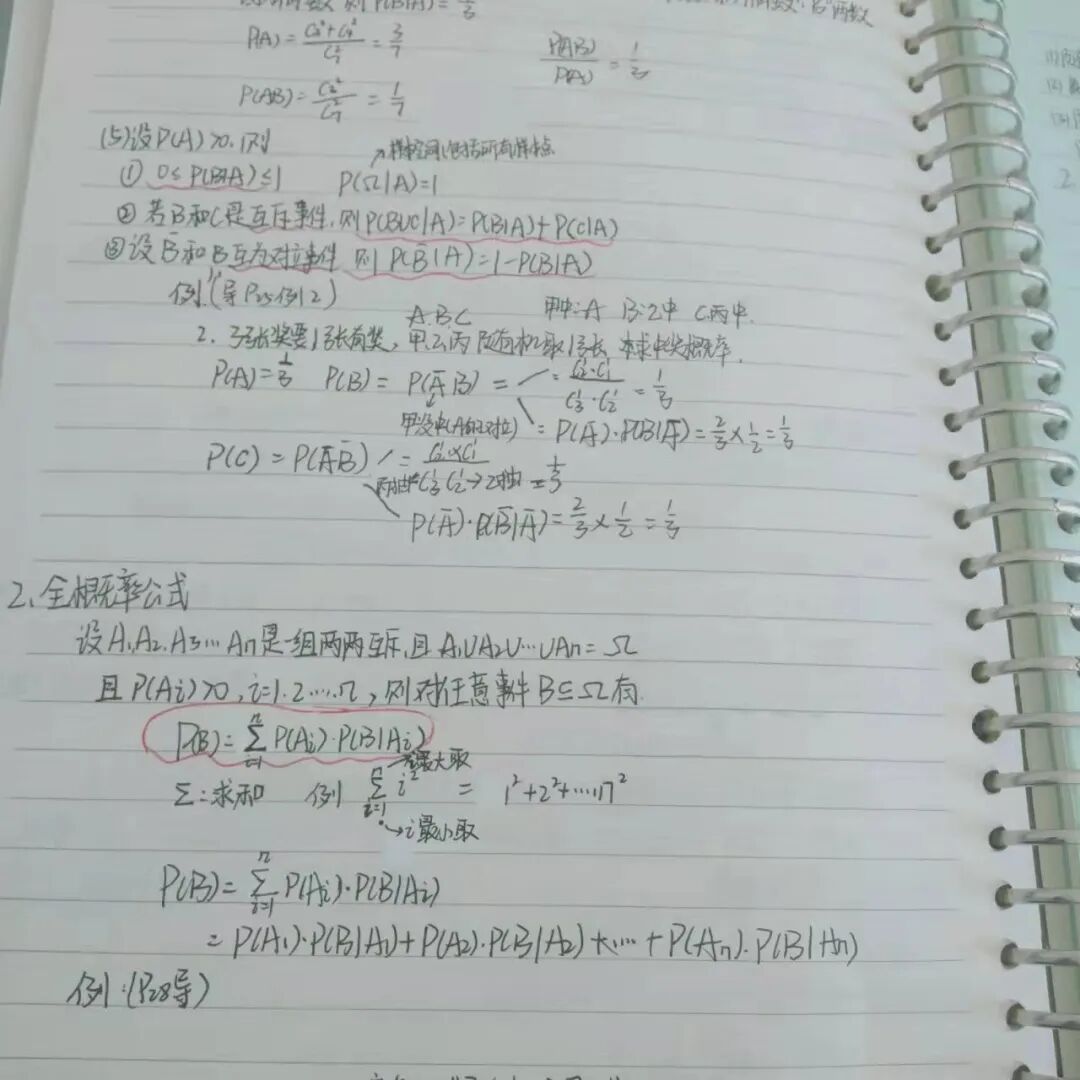 则P(B|A)=
两数
P(A)=(C₃²+C₄²)/C₇²=3/7
P(AB)/P(A)=1/3
P(AB)=C₃²/C₇²=1/7
(5)设P(A)>0,则
→样本空间(包括所有样本点
① 0≤P(B|A)≤1 P(Ω|A)=1
② 若B和C是互斥事件,则P(B∪C|A)=P(B|A)+P(C|A)
③设B̄和B互为对立事件 则P(B̄|A)=1-P(B|A)
例:(导P25例2)
A.B.C 甲中:A B:乙中 C丙中.
2. 3张奖票1张有奖,甲.乙.丙 随机取1张,求中奖概率.
P(A)=1/3 P(B)=P(ĀB)= =(C₂¹·C₁¹)/(C₃¹·C₂¹)=1/3
甲没中(A的对立) =P(Ā)·P(B|Ā)=2/3×1/2=1/3
P(C)=P(ĀB̄) =(C₂¹×C₁¹)/(C₃¹C₂¹)→乙抽 =1/3
P(Ā)·P(B̄|Ā)=2/3×1/2=1/3
2、全概率公式
设A₁.A₂.A₃…An是一组两两互斥,且A₁∪A₂∪…∪An=Ω
且P(Ai)>0,i=1.2….n,则对任意事件B⊆Ω有.
P(B)=∑ⁿᵢ₌₁P(Ai)·P(B|Ai)
Σ:求和 例 ∑ⁿᵢ₌₁ i² = 1²+2²+…n²
最大取
→i最小取
P(B)=∑ⁿᵢ₌₁P(Ai)·P(B|Ai)
=P(A₁)·P(B|A₁)+P(A₂)·P(B|A₂)+…+P(An).P(B|An)
例:(P28导)